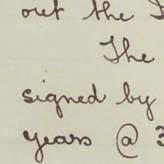 out the
The
signed by
years @